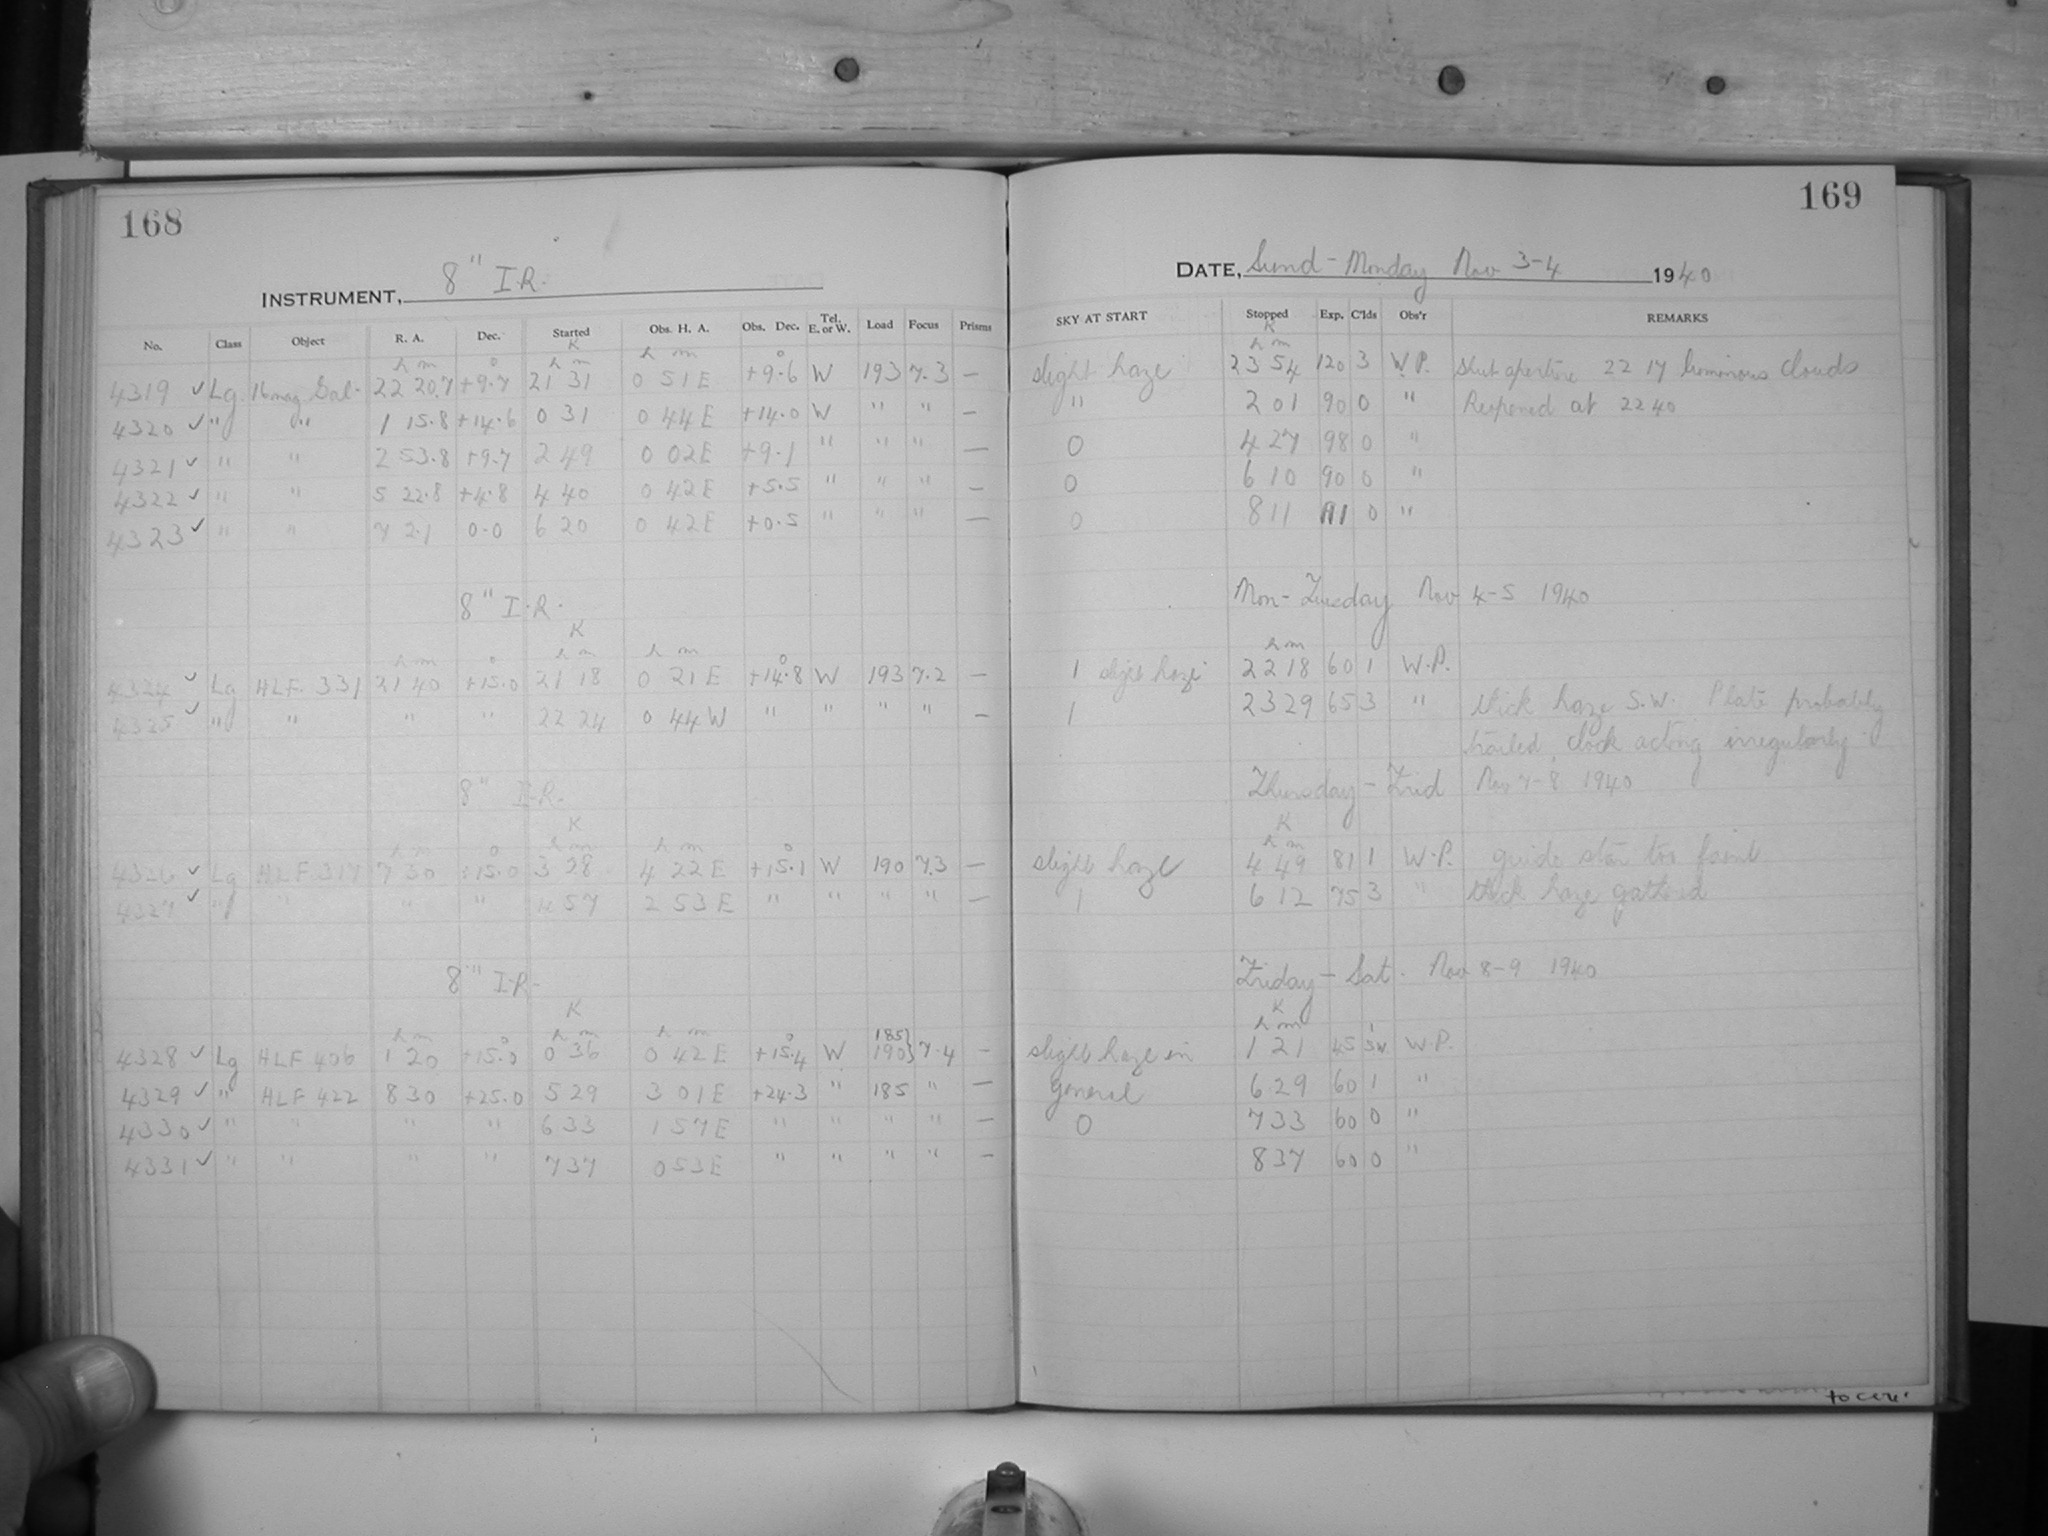 168
INSTRUMENT, 8" I.R.
No. Class Object R. A. Dec. Started Obs. H. A. Obs. Dec. Tel. E. or W. Load Focus Prisms
K
h m ° h m h m °
4319 ✓ Lg. 16 mag Gal. 22 20.7 +9.7 21 31 0 51 E +9.6 W 193 7.3 —
4320 ✓ " " 1 15.8 +14.6 0 31 0 44 E +14.0 W " " —
4321 ✓ " " 2 53.8 +9.7 2 49 0 02 E +9.1 " " " —
4322 ✓ " " 5 22.8 +4.8 4 40 0 42 E +5.5 " " " —
4323 ✓ " " 7 2.1 0.0 6 20 0 42 E +0.5 " " " —
8" I.R.
K
h m ° h m h m °
4324 ✓ Lg HLF. 331 21 40 +15.0 21 18 0 21 E +14.8 W 193 7.2 —
4325 ✓ " " " " 22 24 0 44 W " " " " —
8" I.R.
K
h m ° h m h m °
4326 ✓ Lg HLF 317 7 30 +15.0 3 28 4 22 E +15.1 W 190 7.3 —
4327 ✓ " " " " 4 57 2 53 E " " " " —
8" I.R.
K
h m ° h m h m ° 185}
4328 ✓ Lg HLF 406 1 20 +15.0 0 36 0 42 E +15.4 W 190} 7.4 —
4329 ✓ " HLF 422 8 30 +25.0 5 29 3 01 E +24.3 " 185 " —
4330 ✓ " " " " 6 33 1 57 E " " " " —
4331 ✓ " " " " 7 37 0 53 E " " " " —
169
DATE, Sund - Monday Nov 3-4 1940
SKY AT START Stopped Exp. C'lds Obs'r REMARKS
K
h m
slight haze 23 54 120 3 W.P. Shut aperture 22 17 luminous clouds
" 2 01 90 0 " Reopened at 22 40
0 4 27 98 0 "
0 6 10 90 0 "
0 8 11 0 "
Mon - Tuesday Nov 4-5 1940
h m
1 slight haze 22 18 60 1 W.P.
1 23 29 65 3 " thick haze S.W. Plate probably
trailed, clock acting irregularly.
Thursday - Frid Nov 7-8 1940
K
h m
slight haze 4 49 81 1 W.P. guide star too faint
1 6 12 75 3 " thick haze gathered
Friday - Sat. Nov 8-9 1940
K
h m 1
slight haze in 1 21 45 SW W.P.
general 6 29 60 1 "
0 7 33 60 0 "
8 37 60 0 "